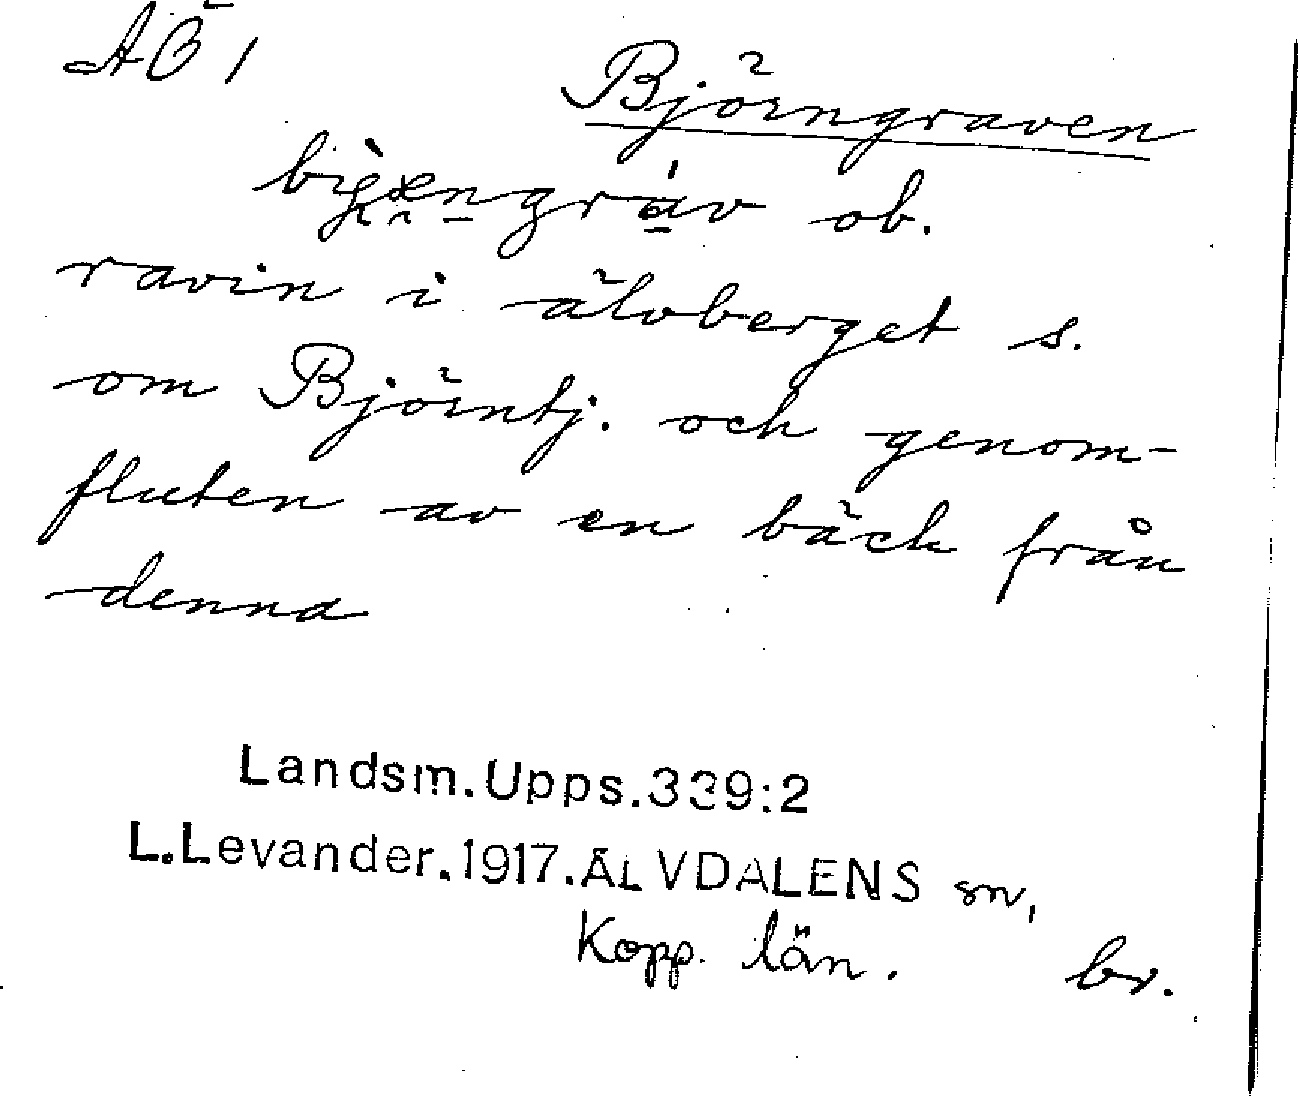 AÖ 1
Björngraven
ob.
ravin i älvberget s.
om Björntj. och genom-
fluten av en bäck från
denna
Landsm.Upps.339:2
L.Levander.1917.ÄLVDALENS sn,
Kopp. län.
br.